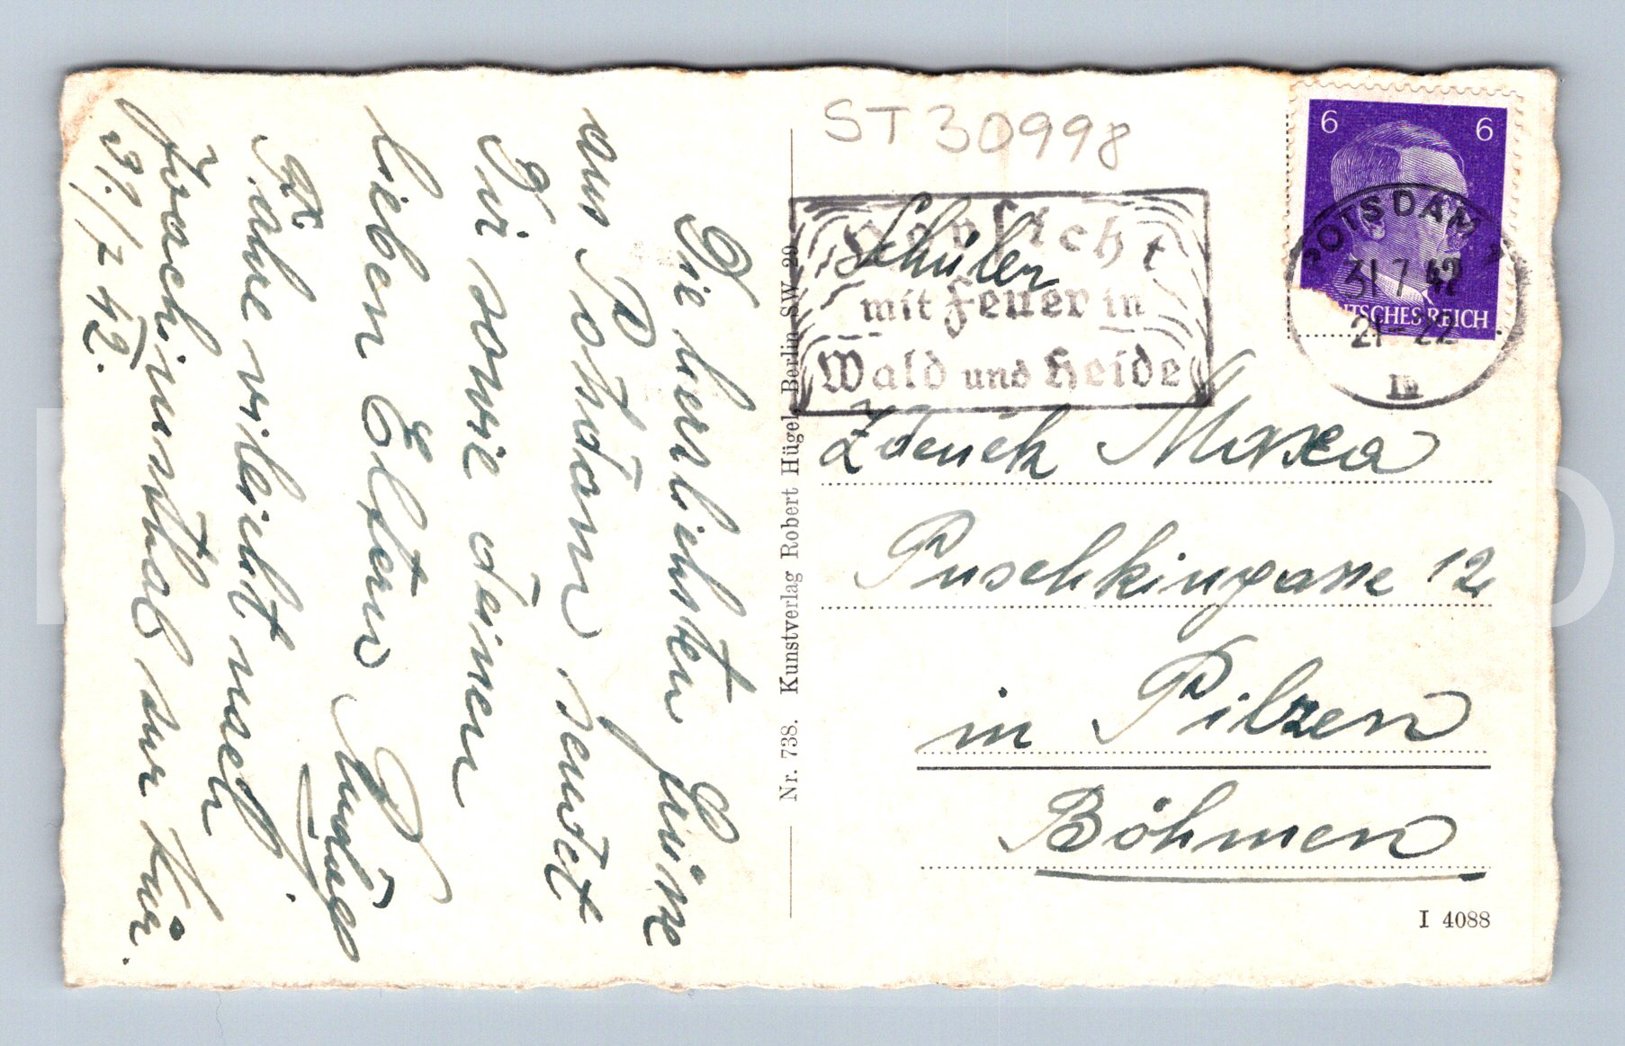 Die herzlichsten Grüße
aus Potsdam sendet
Dir sowie deinen
lieben Eltern
Fahre vileicht nach
Joachimsthal zur Kur.
31./7 42.
Nr. 738. Kunstverlag Robert Hügel, Berlin SW 29
ST 30998
6 6
DEUTSCHES REICH
POTSDAM 2
31 7 42
21-22
Vorsicht
mit Feuer in
Wald und Heide
Schüler
Zdenek Maxa
Puschkingasse 12
in Pilzen
Böhmen
I 4088